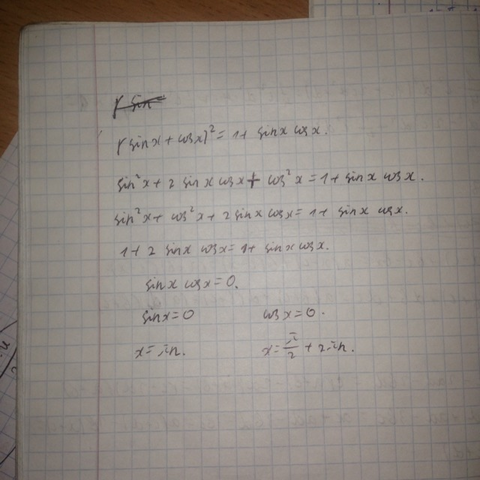 (sin x + cos x)² = 1 + sin x cos x.
sin² x + 2 sin x cos x + cos² x = 1 + sin x cos x.
sin² x + cos² x + 2 sin x cos x = 1 + sin x cos x.
1 + 2 sin x cos x = 1 + sin x cos x.
sin x cos x = 0.
sin x = 0 cos x = 0.
x = πn. x = π/2 + 2πn.